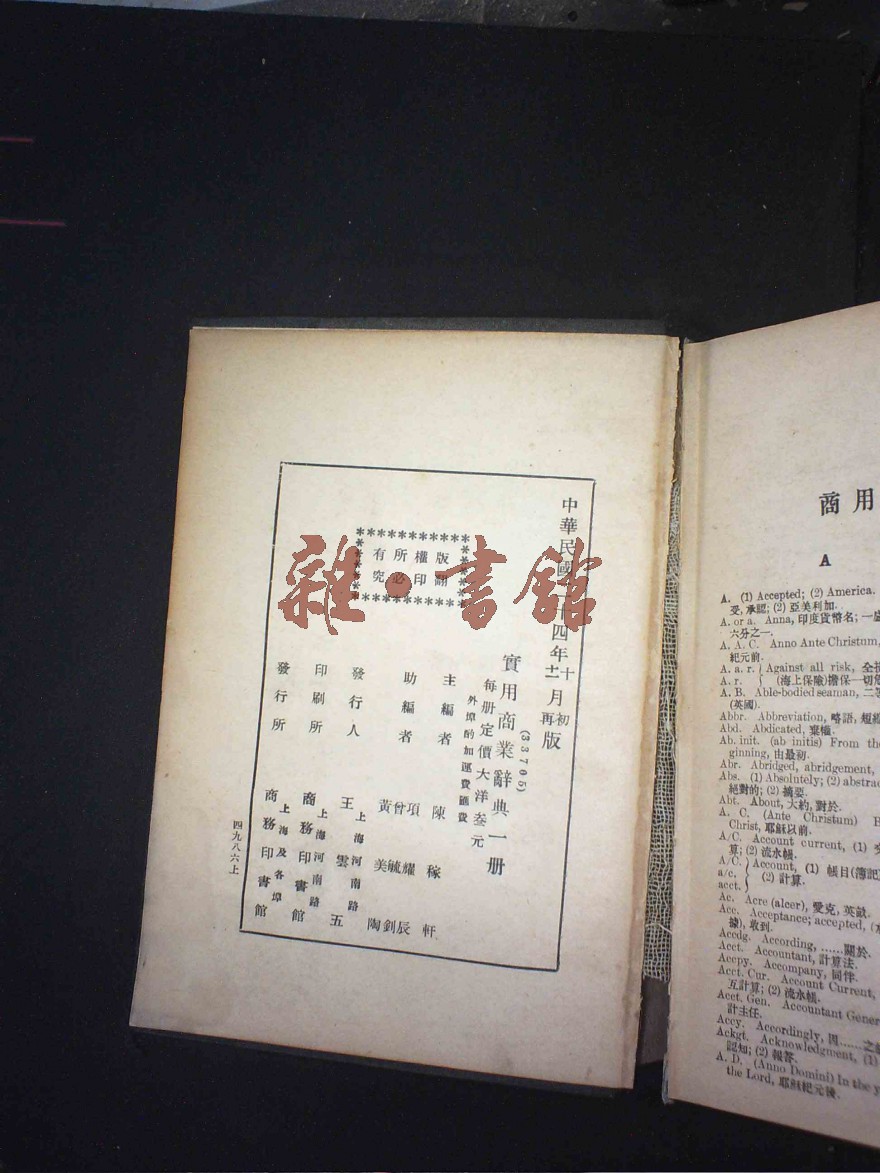 中華民國 十四年十月初版
十一 再
(33795)
實用商業辭典一册
每册定價大洋叁元
外埠酌加運費匯費
主編者 陳稼軒
助編者 項耀辰
曾毓釗
黃美陶
發行人 王雲五
上海河南路
印刷所 商務印書館
上海河南路
發行所 商務印書館
上海及各埠
版權所有
翻印必究
雜·書館
四九八六上
商用
A
A. (1) Accepted; (2) America.
受, 承認; (2) 亞美利加.
A. or a. Anna, 印度貨幣名; 一
六分之一.
A. A. C. Anno Ante Christum,
紀元前.
A. a. r. Against all risk, 全
A. r. (海上保險)擔保一切
A. B. Able-bodied seaman, 二
(英國).
Abbr. Abbreviation, 略語,
Abd. Abdicated, 棄權.
Ab. init. (ab initis) From the
ginning, 由最初.
Abr. Abridged, abridgement,
Abs. (1) Absolutely; (2) abstrac
絕對的; (2) 摘要.
Abt. About, 大約, 對於.
A. C. (Ante Christum) B
Christ, 耶穌以前.
A/C. Account current, (1)
算; (2) 流水帳.
A/C.
a/c. Account, (1) 帳目(簿記
acct. (2) 計算.
Ac. Acre (alcer), 愛克, 英畝.
Acc. Acceptance; accepted,
據), 收到.
Accdg. According, ......關於.
Acct. Accountant, 計算法.
Accpy. Accompany, 同伴.
Acct. Cur. Account Current,
互計算; (2) 流水帳.
Acct. Gen. Accountant Gener
計主任.
Accy. Accordingly, 因......之
Ackgt. Acknowledgment, (1)
認知; (2) 報答.
A. D. (Anno Domini) In the y
the Lord, 耶穌紀元後.